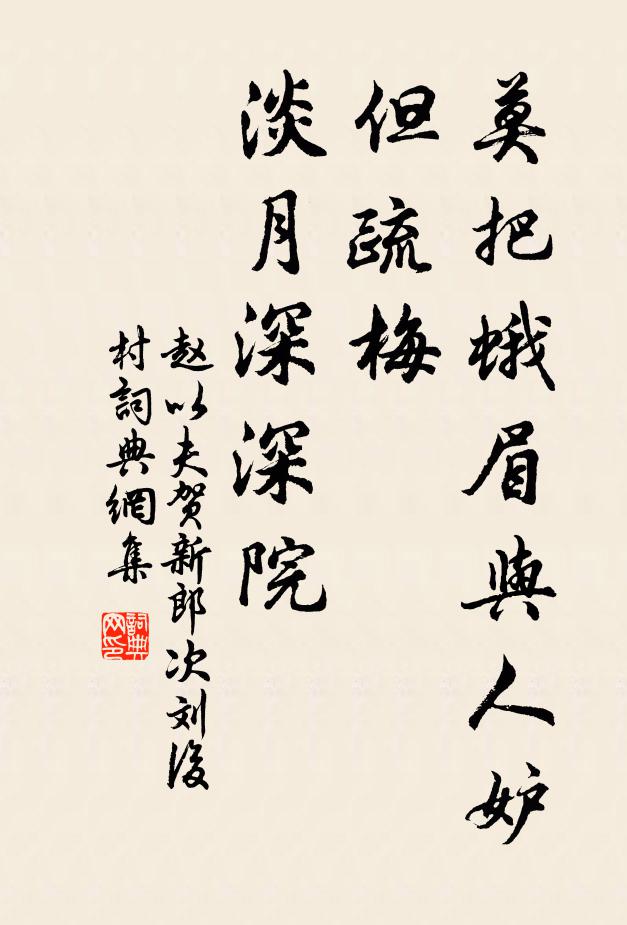 莫把蛾眉與人妒
但疏梅
淡月深深院
赵以夫贺新郎次刘後
村詞典網集
詞典网印